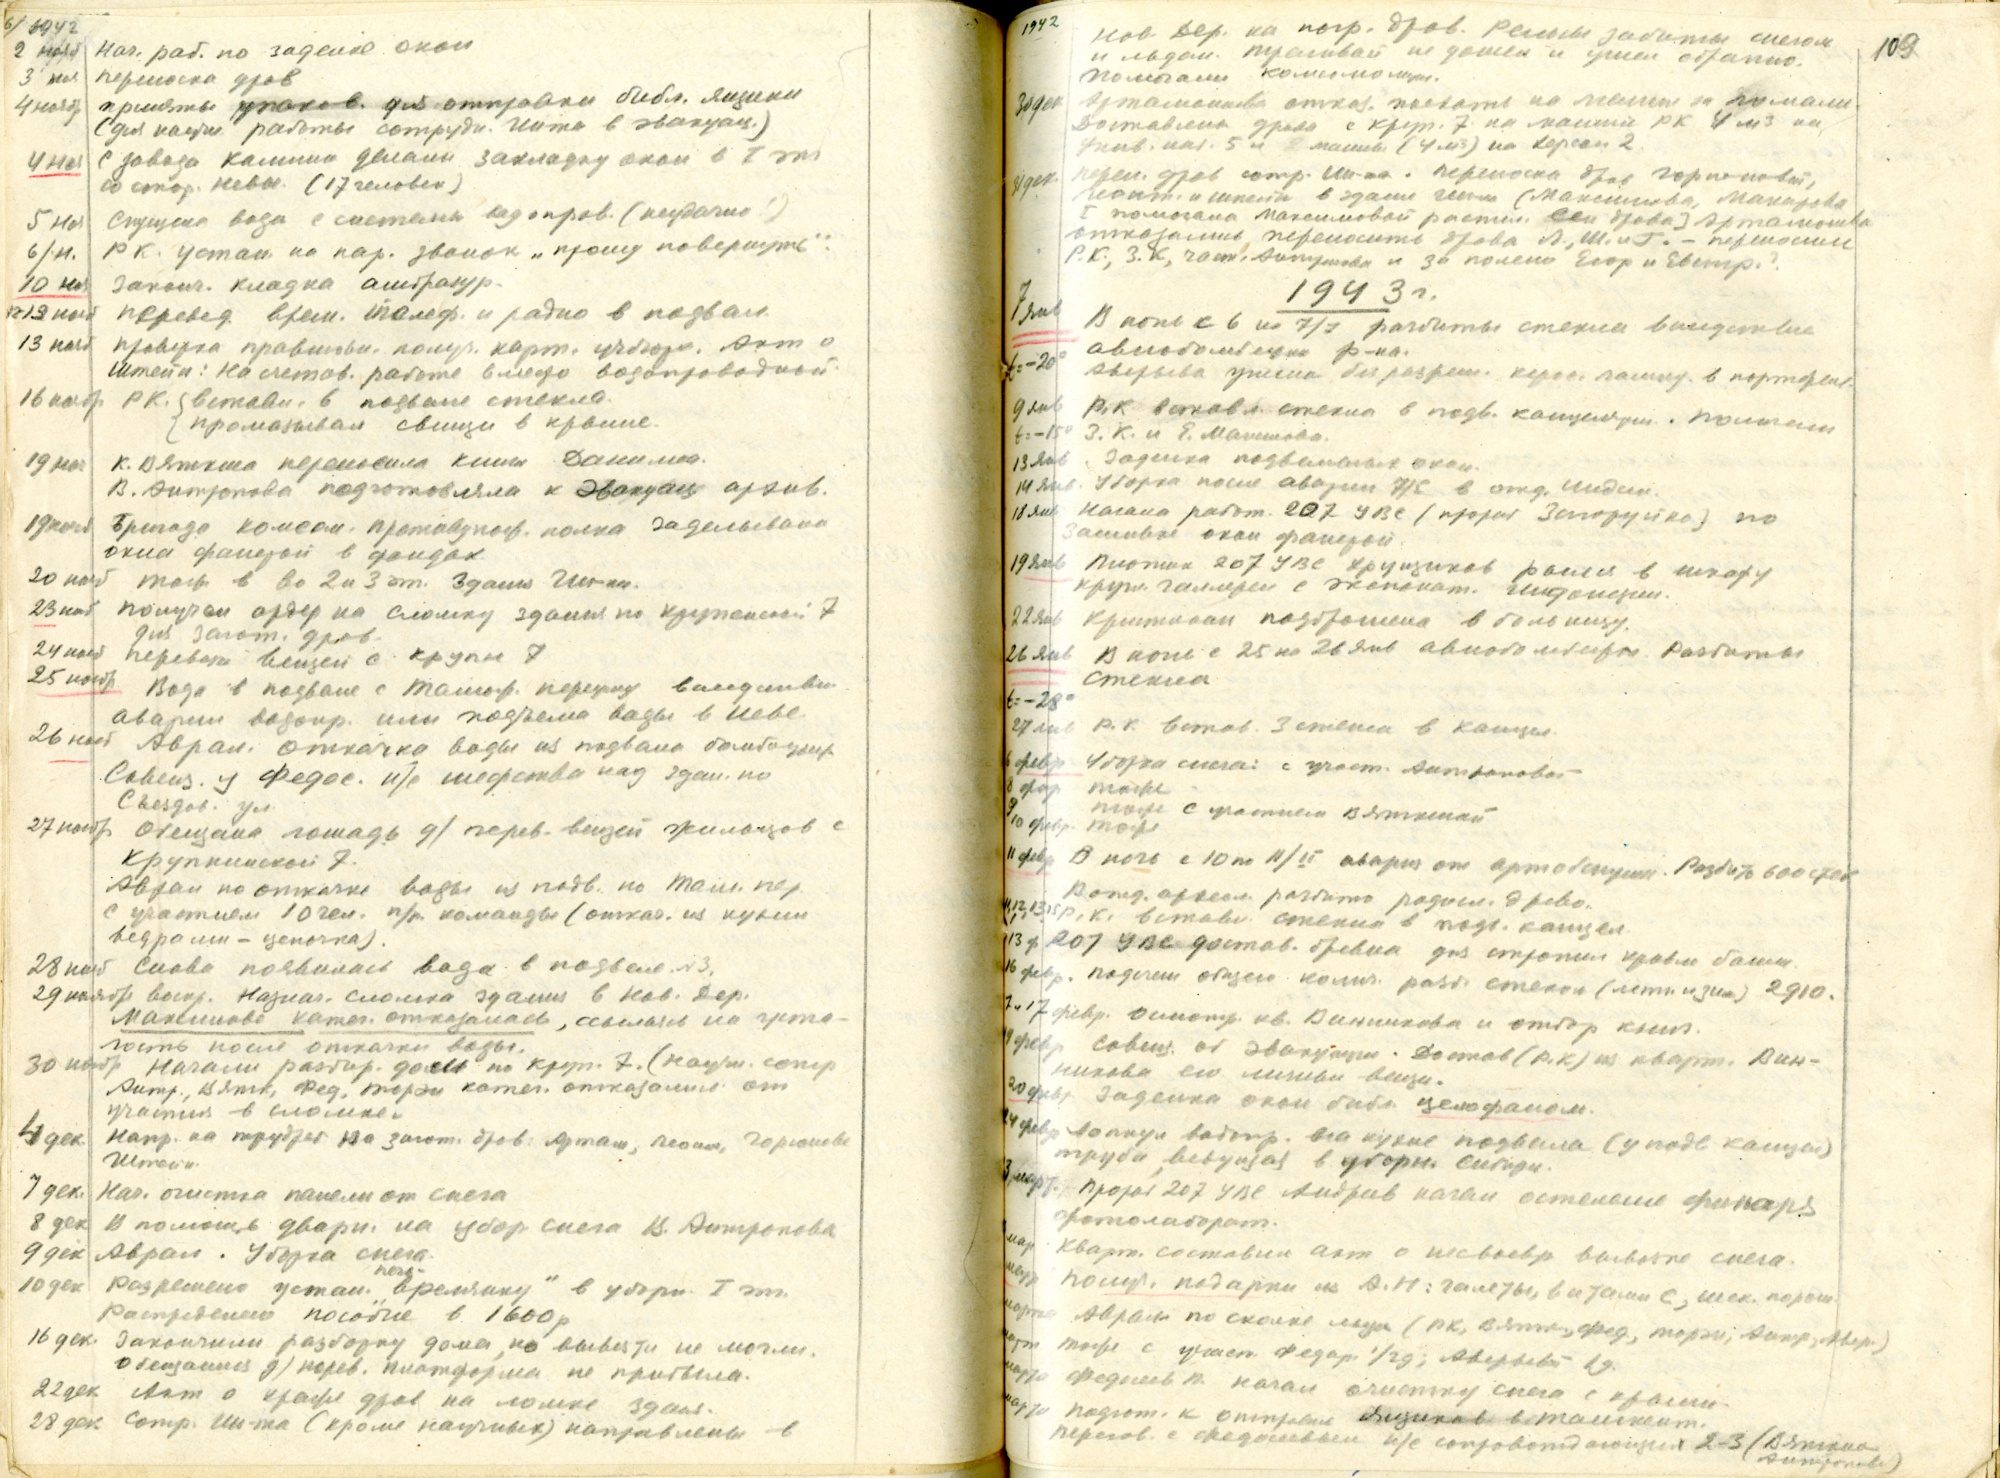 6/ 1942
2 нояб Нач. раб. по заделке окон
3 ноя переноска дров
4 ноября приняты упаков. для отправки библ. ящики
(для научн. работы сотрудн. Инта в эвакуац.)
4 ноя С завода Калинина делали закладку окон в I эт
со стор. Невы. (17 человек)
5 ноя Спущена вода с системы водопров. (неудачно!)
6/н. Р.К. устан. на пар. звонок „прошу повернуть".
10 ноя Законч. кладка амбразур.
12-13 нояб перевед. врем. телеф. и радио в подвал
13 нояб проверка правильн. получ. карт. Акт о
Штейн: На счетов. работе вместо водопроводной.
16 ноябр Р.К. { вставл. в подвале стекла.
{ промазывал свищи в крыше.
19 ноя К. Вяткина переносила книги Данилина.
В. Антропова подготовляла к эвакуац архив.
19 нояб Бригада комсом. противупож. полка заделывала
окна фанерой в фондах
20 нояб тож. в во 2 и 3 эт. здания Ин-та.
23 нояб получен ордер на сломку здания по Крупенской 7
для загот. дров.
24 нояб перевозк вещей с Крупн 7
25 ноябр Вода в подвале с Тамож. переулку вследствии
аварии водопр. или подъема воды в Неве
26 нояб Аврал. Откачка воды из подвала бомбоубеж.
Совещ. у Федос. н/с шефства над здан. по
Съездов. ул
27 ноябр Обещана лошадь д/ перев. вещей жильцов с
Крупкинской 7.
Аврал по откачке воды из подв. по Там. пер.
с участием 10 чел. п/п. команды (откач. из кухни
ведрами – цепочка).
28 нояб Снова появилась вода в подвале №3.
29 ноябр воскр. Назнач. сломка здания в Нов. Дер.
Максимова катег. отказалась, ссылаясь на уста-
лость после откачки воды.
30 ноябр Начали разбор. дома по Круп. 7. (Научн. сотр
Антр., Вятк., Фед., Торэн катег. отказались от
участия в сломке.
4 дек. Напр. на трудраб на загот. дров: Артам., Леонт., Горюнова
Штейн
7 дек. Нач. очистка панели от снега
8 дек В помощь дворн. на убор снега В. Антропова
9 дек Аврал. Уборка снега.
10 дек Разрешено устан. печь-„времянку" в уборн. I эт.
Распределено пособие в 1600 р
16 дек. Закончили разборку дома, но вывезти не могли.
Обещанная д/ перев. платформа не прибыла.
22 дек Акт о краже дров на ломке здан.
28 дек Сотр. Ин-та (кроме научных) направлены в
1942
109
Нов. Дер. на погр. дров. Рельсы забиты снегом
и льдом. Трамвай не дошел и ушел обратно.
Помогали комсомольцы.
30 дек Артамонова отказ. поехать на машине за дровами.
Доставлены дрова с Круп. 7 на машине РК 4 м3 на
Унив. наб. 5 и 2 машины (4 м3) на Херсон 2.
31 дек. перен. дров сотр. Ин-та. Переноска дров Горюновой,
Леонт. и Штейн в здание Ин-та (Максимова, Макарова
помогала Максимовой распил. дрова) Артамонова
отказались переносить дрова Л., Ш. и Г. – переносили
Р.К., З.К., част. Антропова и за полено Егор и Евстр.?
1943 г.
7 янв В ночь с 6 на 7/I разбиты стекла вследствие
авиобомбежки р-на.
t=-20° Аверьева унесла без разреш. керос. лампу. в портфеле.
9 янв Р.К вставл. стекла в подв. канцелярии. Помогали
t=-15° З. К. и Е. Максимова.
13 янв Заделка подвальных окон.
14 янв. Уборка после аварии 7/I в отд. Индии.
18 янв Начала работ. 207 УВС (прораб Загоруйко) по
зашивке окон фанерой.
19 янв Плотник 207 УВС Хрущиков рылся в шкафу
кругл. галлереи с экспонат. Индонезии.
22 янв Криткоан подброшена в больницу.
26 янв В ночь с 25 на 26 янв авиобомбежк. Разбиты
стекла
t=-28°
27 янв Р.К. встав. 3 стекла в канцел.
6 февр Уборка снега: с участ. Антроповой
8 фвр тоже
9 тоже с участием Вяткиной
10 февр. тоже
11 февр В ночь с 10 по 11/II авария от артобстрела. Разбито 600 стек
В отд. археол. разбито родосл. древо.
11, 12, 13, 15 Р.К. вставл стекла в подв. канцел
13 ф 207 УВС достав. бревна для стропил кровли башни.
16 февр. подсчет общего колич. разб. стекол (лет. и зим) 2910.
7 и 17 февр. Осмотр. кв. Винникова и отбор книг.
19 февр Совещ. об эвакуации. Достав (Р.К) из кварт. Вин-
никова его личные вещи.
20 февр Заделка окон библ. целофаном.
24 февр Лопнул водопр. на кухне подвала (у подв канцел)
труба, ведущая в уборн. Сибири.
3 март. Прораб 207 УВС Андреев начал остекление фонаря
фотолаборат.
мар Кварт. составил акт о несвоевр вывозке снега.
март Получ. подарки из А.Н: галеты, витамин С, мек. порош.
марта Аврал по сколке льда (РК, Вятк, Фед, Торэн, Антр, Авер.)
март тоже с участ. Федор. 1/2 д; Аверьевой 1 д.
марта Федосеев А. начал очистку снега с крыши.
марта Подгот. к отправке ящиков в Ташкент.
Перегов. с Федосеевым н/с сопровождающих 2–3 (Вяткина
Антропова)